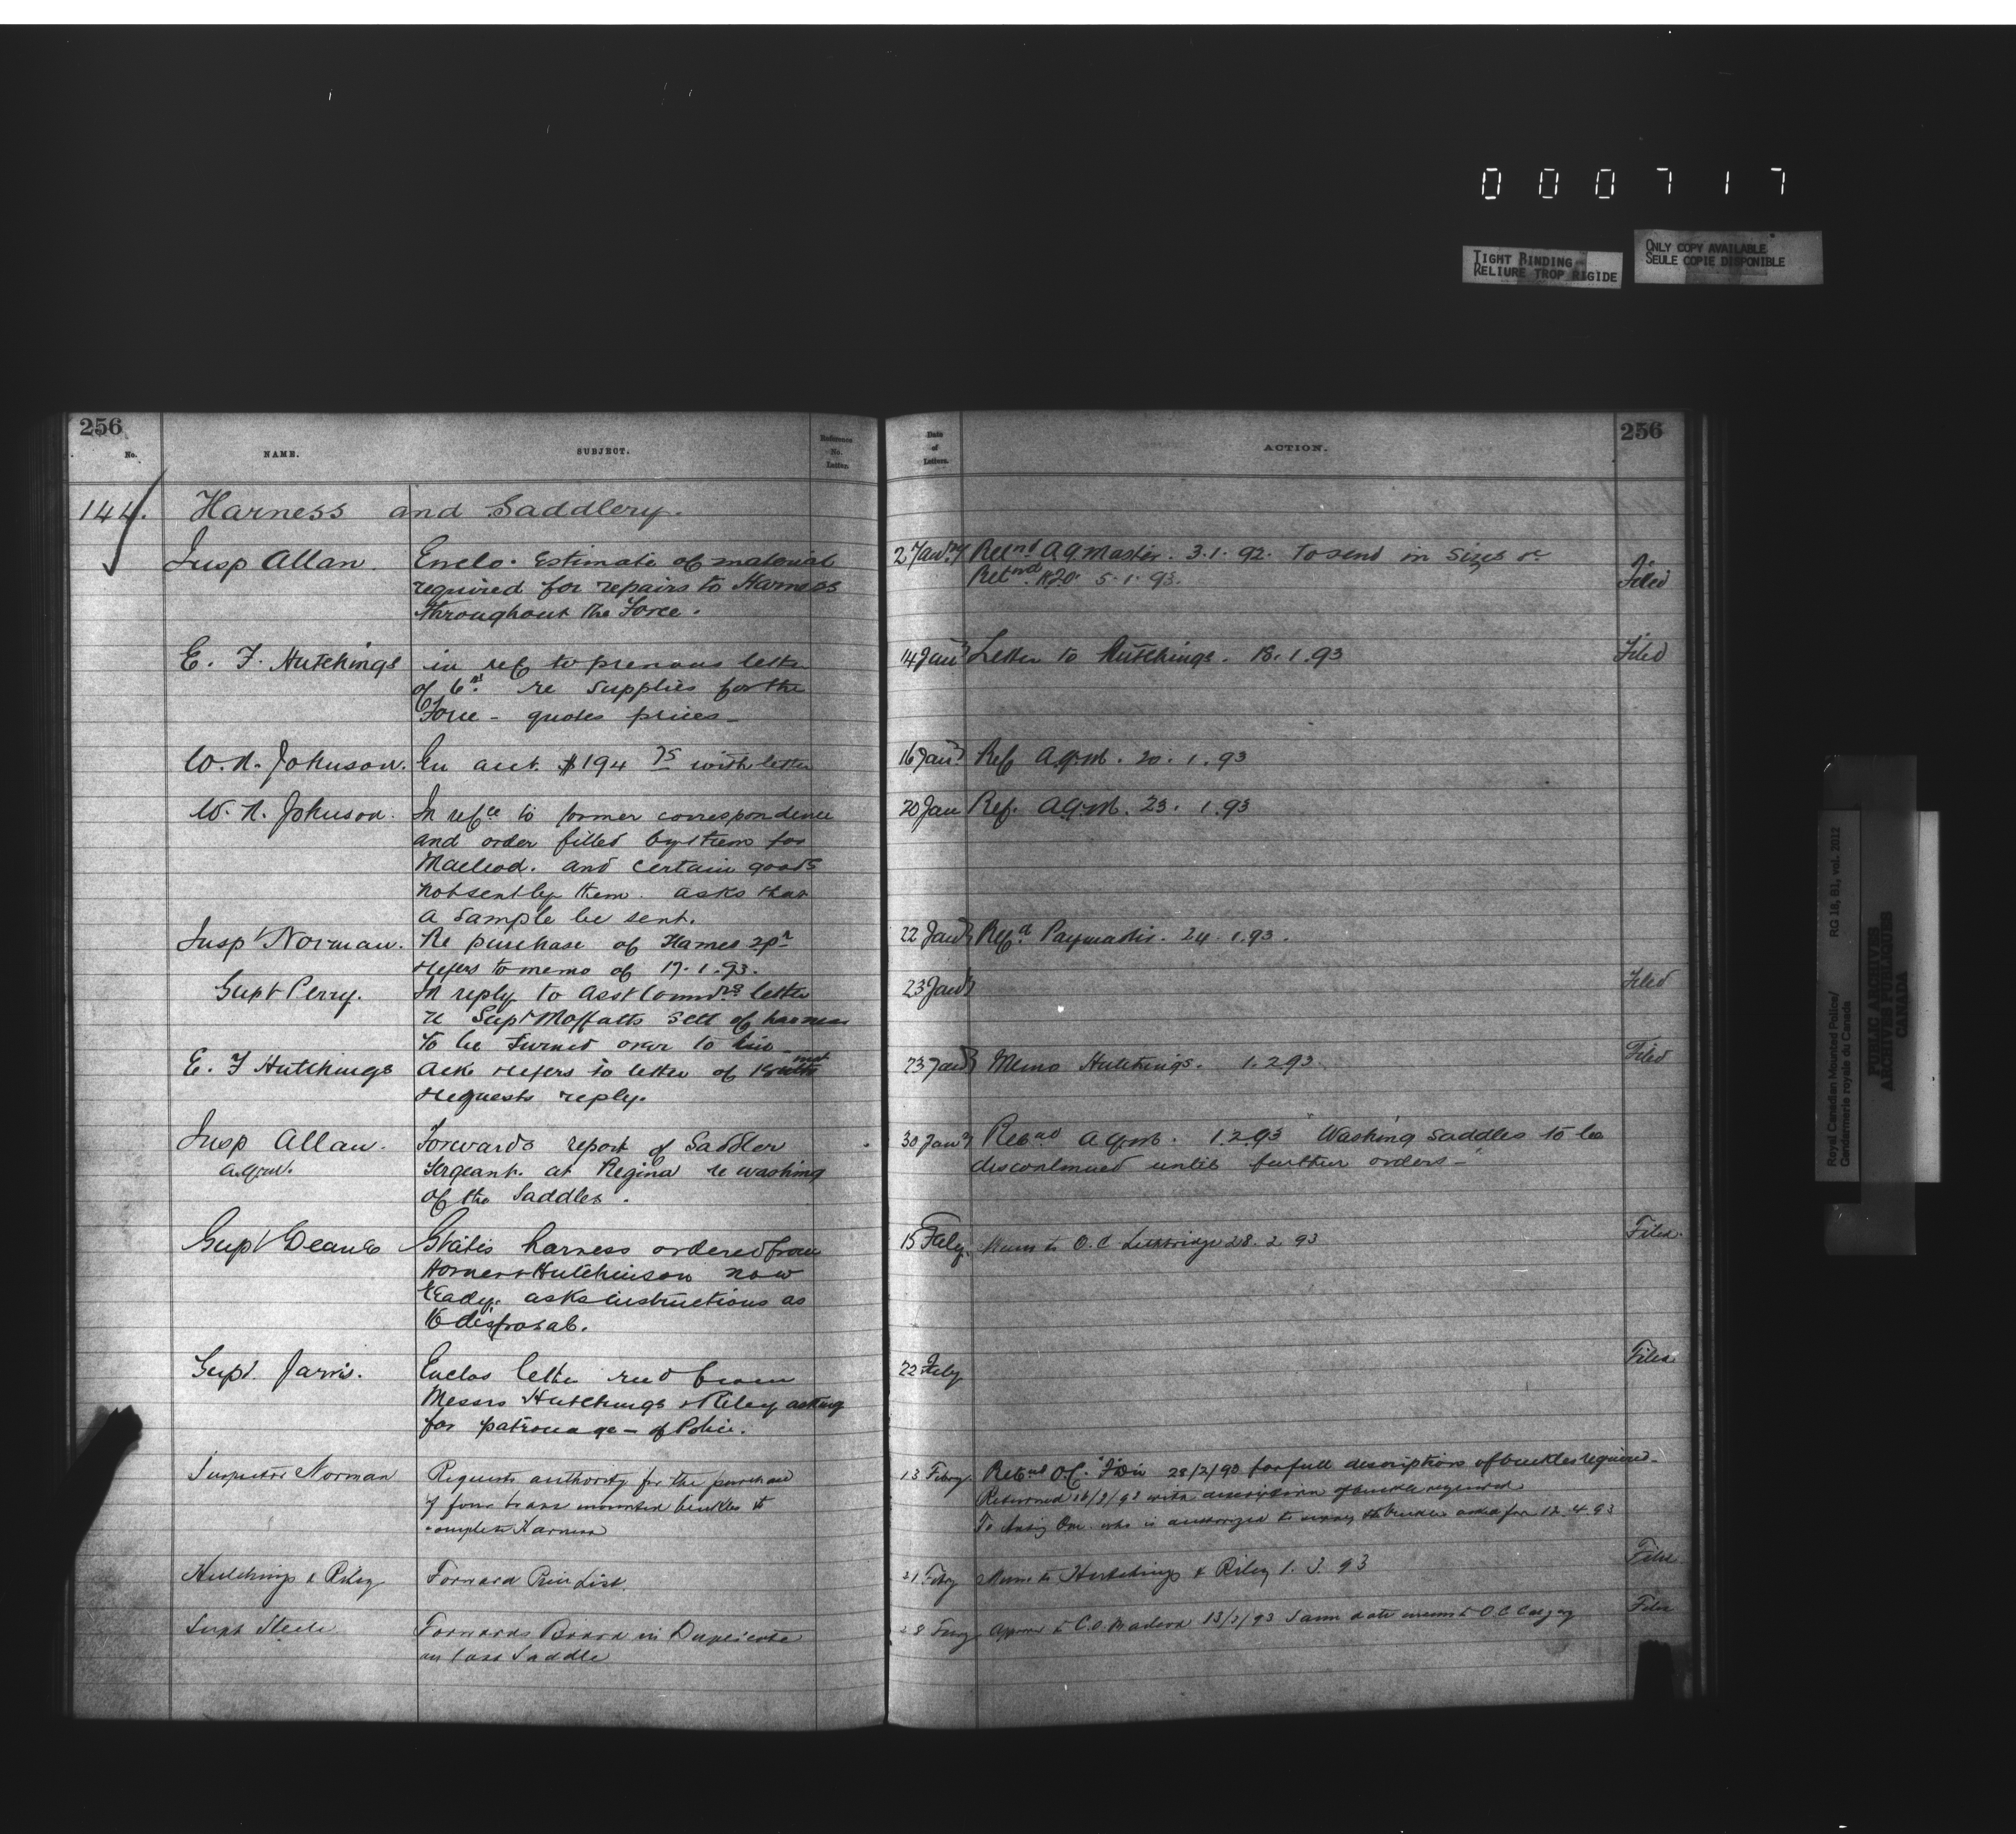 0 0 0 7 1 7
TIGHT BINDING
RELIURE TROP RIGIDE
ONLY COPY AVAILABLE
SEULE COPIE DISPONIBLE
256
No.
NAME.
SUBJECT.
Reference
No.
Letter.
Date
of
Letters.
ACTION.
256
144. Harness and Saddlery.
Insp Allan. Enclo. Estimate of material
required for repairs to Harness
throughout the Force.
2 Jany Retnd A Q Master. 3.1.92. To send in sizes &c
Retnd 5.1.93.
Filed
E. F. Hutchings in ref to previous letter
of 6th re supplies for the
Force - quotes prices -
14 Jany Letter to Hutchings. 18.1.93
Filed
W. N. Johnson. En acct. $194 75 with letter
16 Jany Ref A.Q.M. 20.1.93
W. N. Johnson. In refce to former correspondence
and order filled by them for
Macleod. and certain goods
not sent by them. asks that
a sample be sent.
20 Jan Ref. A.Q.M. 23.1.93
Insp Norman. Re purchase of Hames 2pr
refers to memo of 17.1.93.
22 Jany Refd Paymaster. 24.1.93.
Supt Perry. In reply to Asst Commrs letter
re Supt Moffatts sett of harness
to be turned over to him
23 Jany
Filed
E. F Hutchings Ack refers to letter of
requests reply.
23 Jany Memo Hutchings. 1.2.93.
Filed
Insp Allan. Forwards report of Saddler
A.Q.M. Sergeant. at Regina re washing
of the Saddles.
30 Jany Retnd A.Q.M. 1.2.93 "Washing saddles to be
discontinued until further orders -"
Supt Deane States harness ordered from
Horner & Hutchinson now
ready. asks instructions as
to disposal.
15 Feby. Memo to O.C. Lethbridge 28.2.93
Filed.
Supt. Jarvis. Enclos letter recd from
Messrs Hutchings & Riley asking
for patronage - of Police.
22 Feby
Filed
Inspector Norman Requests authority for the purchase
of four brass mounted buckles to
complete Harness
13 Febry. Retnd O.C. Div 28/2/90 for full description of buckles required -
Returned with description of buckle required
To who is authorized to supply the buckles asked for 12.4.93
Hutchings & Riley Forward Price List.
21 Febry Memo to Hutchings & Riley 1.3.93
Filed
Supt Steele Forwards Board in Duplicate
on lost Saddle
28 Feby Approved to C.O. Macleod 13/3/93 Same date memo to O C Calgary
Filed
Royal Canadian Mounted Police/ RG 18, B1, vol. 2012
Gendarmerie royale du Canada
PUBLIC ARCHIVES
ARCHIVES PUBLIQUES
CANADA